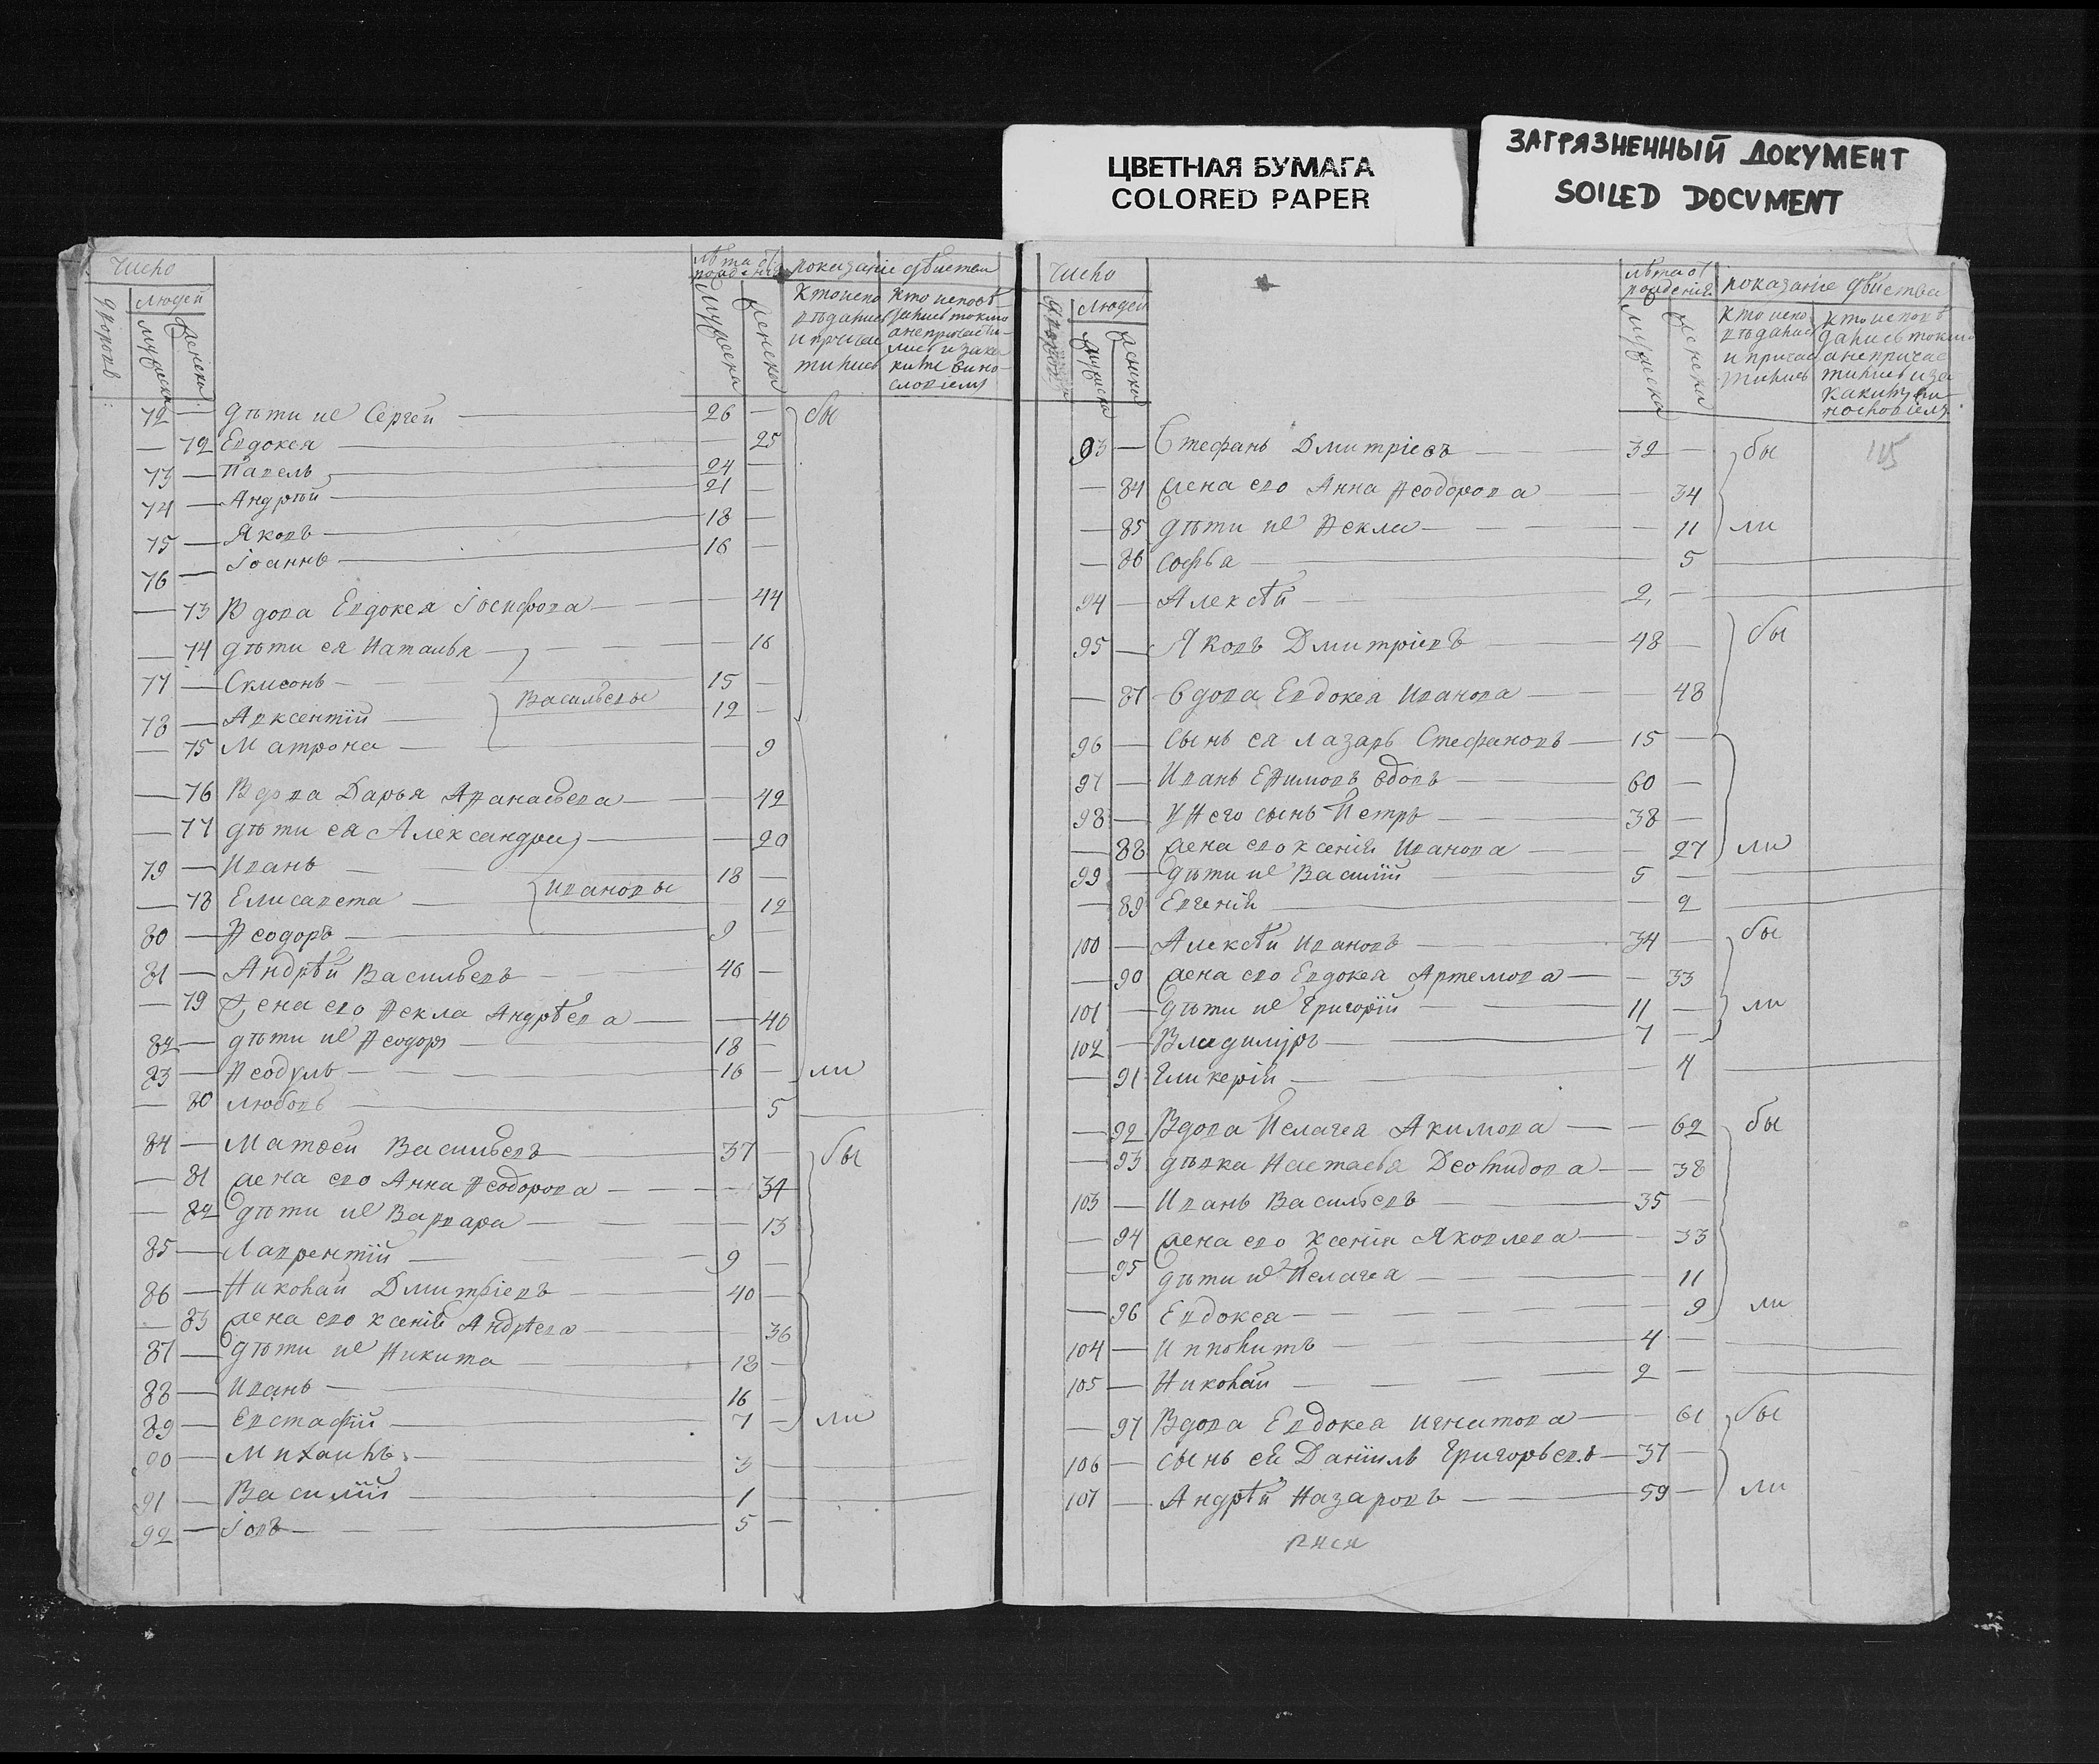 ЦВЕТНАЯ БУМАГА
COLORED PAPER
ЗАГРЯЗНЕННЫЙ ДОКУМЕНТ
SOILED DOCUMENT
Число
лѣта от рожденія
показаніе дѣйства
дворовъ
людей
мужеска
женска
мужеска
женска
Кто испо
вѣдались
и причас
тились
Кто исповѣ
дались токмо
а не причасти
лись и за ка
кимъ вино
словіемъ
72 — дѣти ихъ Сергей — 26 — бы
— 72 Евдокея — 25
73 — Павелъ — 24 —
74 — Андрѣй — 21 —
75 — Яковъ — 18 —
76 — Іоаннъ — 16 —
— 73 Вдова Евдокея Іосифова — 44
— 74 дѣти ея Наталья — 16
77 — Симеонъ — 15 —
Васильевы
78 — Авксентій — 12 —
— 75 Матрона — 9
— 76 Вдова Дарья Аѳанасьева — 42
— 77 дѣти ея Александра — 20
79 — Иванъ — 18 —
Ивановы
— 78 Елисавета — 12
80 — Ѳеодоръ — 9 —
81 — Андрѣй Васильевъ — 46 —
— 79 Жена его Ѳекла Андрѣева — 40
82 — дѣти ихъ Ѳеодоръ — 18 —
83 — Ѳеодулъ — 16 — ли
— 80 Любовь — 5
84 — Матѳей Васильевъ — 37 — бы
— 81 жена его Анна Ѳеодорова — 34
— 82 дѣти ихъ Варвара — 13
85 — Лаврентій — 9 —
86 — Николай Дмитріевъ — 40 —
— 83 жена его Ксенія Андрѣева — 36
87 — дѣти ихъ Никита — 18 —
88 — Иванъ — 16 —
89 — Евстафій — 7 — ли
90 — Михаилъ — 3
91 — Василій — 1
92 — Іовъ — 5 —
Число
лѣта от рожденія
показаніе дѣйства
дворовъ
людей
мужеска
женска
мужеска
женска
Кто испо
вѣдались
и причас
тились
Кто исповѣ
дались токмо
а не причас
тились и за
какимъ ви
нословіемъ
115
93 — Стефанъ Дмитріевъ — 32 — бы
— 84 жена его Анна Ѳеодорова — 34
— 85 дѣти ихъ Ѳекла — 11 ли
— 86 Софья — 5
94 — Алексѣй — 2 —
95 — Яковъ Дмитріевъ — 48 — бы
— 87 Вдова Евдокея Иванова — 48
96 — сынъ ея Лазарь Стефановъ — 15 —
97 — Иванъ Еѳимовъ вдовъ — 60 —
98 — У него сынъ Петръ — 38 —
— 88 жена его Ксенія Иванова — 27 ли
99 — дѣти ихъ Василій — 5 —
— 89 Евгенія — 2
100 — Алексѣй Ивановъ — 34 — бы
— 90 жена его Евдокея Артемова — 33
101 — дѣти ихъ Григорій — 11 — ли
102 — Владимиръ — 7 —
— 91 Гликерія — 4
— 92 Вдова Пелагея Акимова — 62 бы
— 93 дѣвка Настасья — 38
103 — Иванъ Васильевъ — 35 —
— 94 жена его Ксенія Яковлева — 33
— 95 дѣти ихъ Пелагея — 11
— 96 Евдокея — 9 ли
104 — Ипполитъ — 4 —
105 — Николай — 2 —
— 97 Вдова Евдокея Игнатова — 61 бы
106 — сынъ ея Даніилъ Григорьевъ — 37 —
107 — Андрѣй Назаровъ — 59 — ли